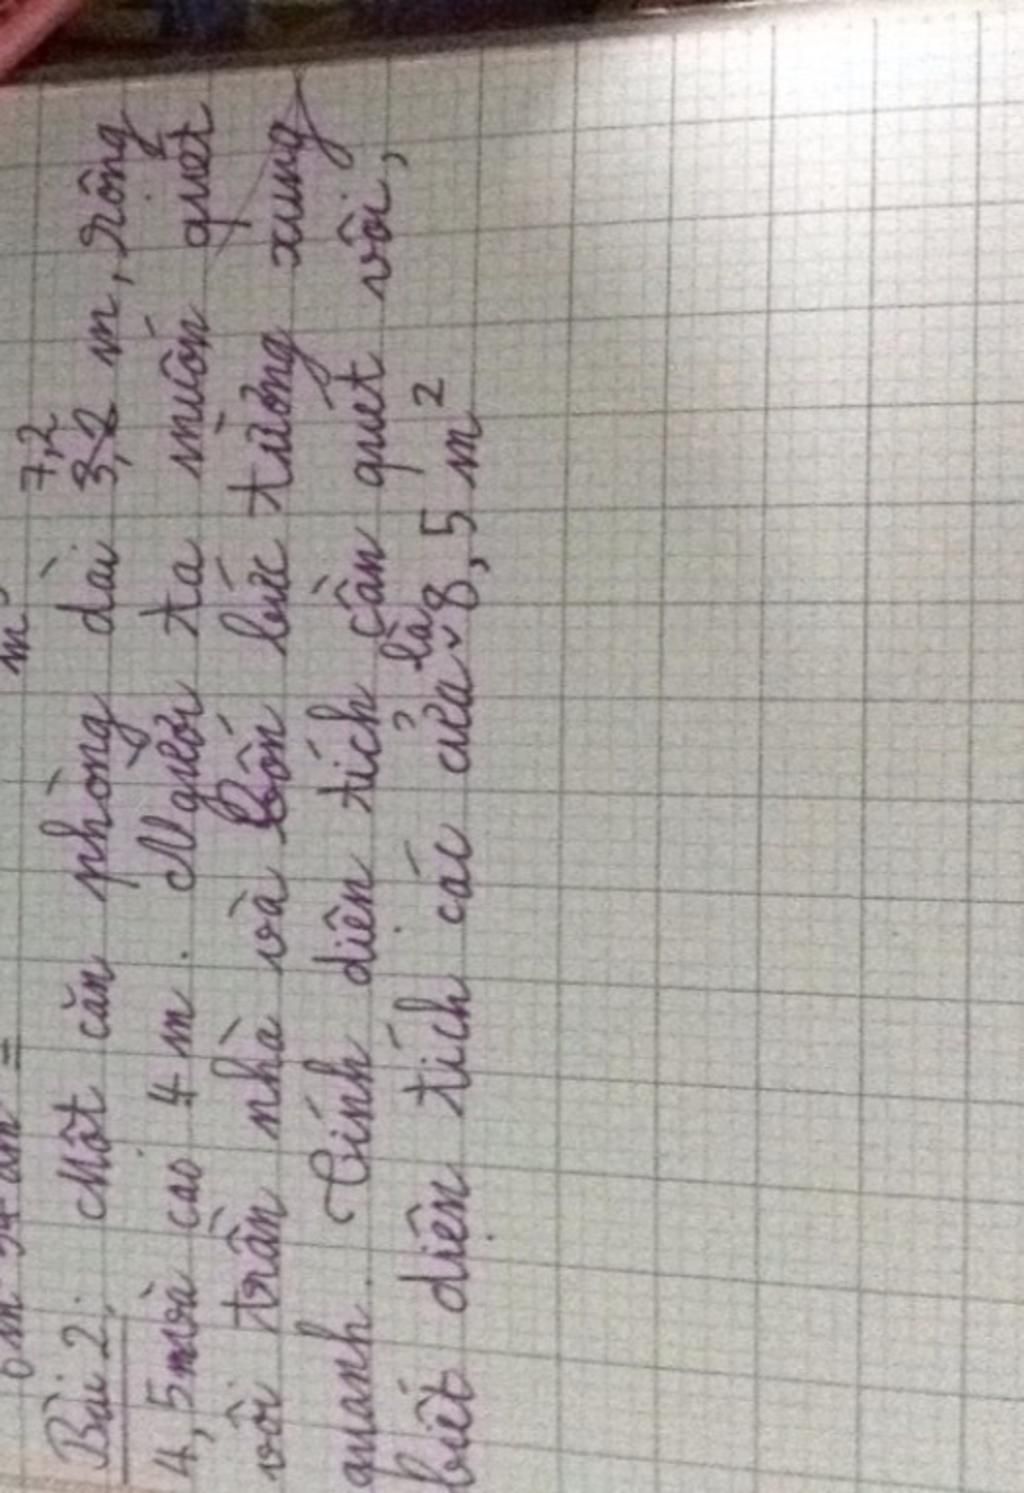 m
Bài 2: Một căn phòng dài 7,2 m, rộng
4,5m và cao 4 m. Người ta muốn quét
vôi trần nhà và bốn bức tường xung
quanh. Tính diện tích cần quét vôi,
biết diện tích các cửa là 8,5 m²